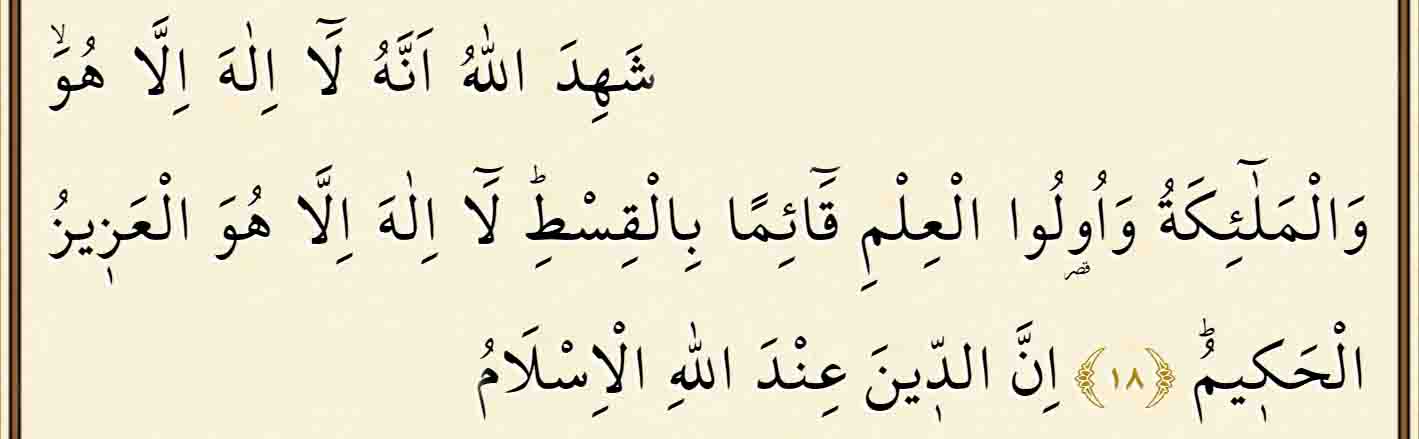 شَهِدَ اللّٰهُ اَنَّهُ لَٓا اِلٰهَ اِلَّا هُوَۙ
وَالْمَلٰٓئِكَةُ وَاُو۬لُوا الْعِلْمِ قَٓائِمًا بِالْقِسْطِۜ لَٓا اِلٰهَ اِلَّا هُوَ الْعَز۪يزُ
الْحَك۪يمُۜ ﴿١٨﴾ اِنَّ الدّ۪ينَ عِنْدَ اللّٰهِ الْاِسْلَامُ